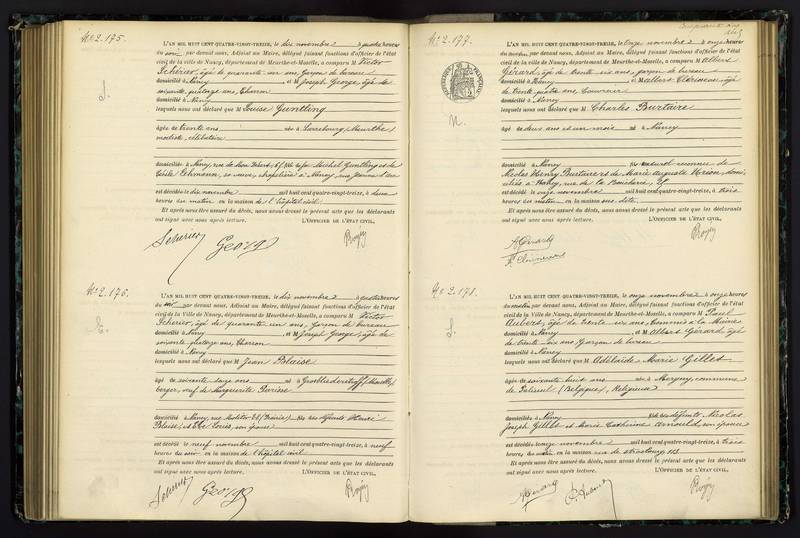 No 2.175.
L'AN MIL HUIT CENT QUATRE-VINGT-TREIZE, le dix novembre à quatre heures
du soir par devant nous, Adjoint au Maire, délégué faisant fonctions d'officier de l'état
civil de la ville de Nancy, département de Meurthe-et-Moselle, a comparu M Victor
Scherier, âgé de quarante un ans, Garçon de bureau
domicilié à Nancy et M Joseph George, âgé de
soixante quatorze ans, Charron
domicilié à Nancy
lesquels nous ont déclaré que M Louise Guntling
âgée de trente ans née à Sarrebourg, (Meurthe)
modiste, célibataire
domiciliée à Nancy, rue de Mon Désert, fille de Michel Guntling et de
Lehmann, sa veuve, chapelière à Nancy, rue Jeanne d'Arc
est décédée le dix novembre mil huit cent quatre-vingt-treize, à deux
heures du matin en la maison de l'hôpital civil
Et après nous être assuré du décès, nous avons dressé le présent acte que les déclarants
ont signé avec nous après lecture. L'OFFICIER DE L'ÉTAT CIVIL,
Scherier George
No 2.176.
L'AN MIL HUIT CENT QUATRE-VINGT-TREIZE, le dix novembre à quatre heures
du soir par devant nous, Adjoint au Maire, délégué faisant fonctions d'officier de l'état
civil de la ville de Nancy, département de Meurthe-et-Moselle, a comparu M Victor
Scherier, âgé de quarante un ans, Garçon de bureau
domicilié à Nancy et M Joseph George, âgé de
soixante quatorze ans, Charron
domicilié à Nancy
lesquels nous ont déclaré que M Jean Blaise
âgé de soixante onze ans né à (Moselle)
berger, veuf de Marguerite
domicilié à Nancy, rue Molitor fils des défunts Henri
Blaise, et son épouse
est décédé le neuf novembre mil huit cent quatre-vingt-treize, à neuf
heures du soir en la maison de l'hôpital civil
Et après nous être assuré du décès, nous avons dressé le présent acte que les déclarants
ont signé avec nous après lecture. L'OFFICIER DE L'ÉTAT CIVIL,
Scherier George
No 2.177.
L'AN MIL HUIT CENT QUATRE-VINGT-TREIZE, le onze novembre à onze heures
du matin par devant nous, Adjoint au Maire, délégué faisant fonctions d'officier de l'état
civil de la ville de Nancy, département de Meurthe-et-Moselle, a comparu M Albert
Gérard, âgé de trente six ans, garçon de bureau
domicilié à Nancy et M Albert âgé
de trente quatre ans
domicilié à Nancy
lesquels nous ont déclaré que M Charles Burtaire
âgé de deux ans et un mois né à Nancy
domicilié à Nancy fils naturel reconnu de
Nicolas Henry Burtaire et de Marie Auguste domi
ciliés à Nancy, rue de la
est décédé le onze novembre mil huit cent quatre-vingt-treize, à trois
heures du matin en la maison sus dite
Et après nous être assuré du décès, nous avons dressé le présent acte que les déclarants
ont signé avec nous après lecture. L'OFFICIER DE L'ÉTAT CIVIL,
A Gérard
No 2.178.
L'AN MIL HUIT CENT QUATRE-VINGT-TREIZE, le onze novembre à onze heures
du matin par devant nous, Adjoint au Maire, délégué faisant fonctions d'officier de l'état
civil de la ville de Nancy, département de Meurthe-et-Moselle, a comparu M Paul
Aubert, âgé de trente six ans, Commis à la Mairie
domicilié à Nancy et M Albert Gérard, âgé
de trente six ans, Garçon de bureau
domicilié à Nancy
lesquels nous ont déclaré que M Adélaïde Marie Gillet
âgée de soixante huit ans née à commune
de Paliseul, (Belgique), Religieuse
domiciliée à Nancy fille des défunts Nicolas
Joseph Gillet et Marie Catherine Arnould son épouse
est décédée le onze novembre mil huit cent quatre-vingt-treize, à trois
heures du matin en la maison rue de Strasbourg
Et après nous être assuré du décès, nous avons dressé le présent acte que les déclarants
ont signé avec nous après lecture. L'OFFICIER DE L'ÉTAT CIVIL,
A Gérard P. Aubert